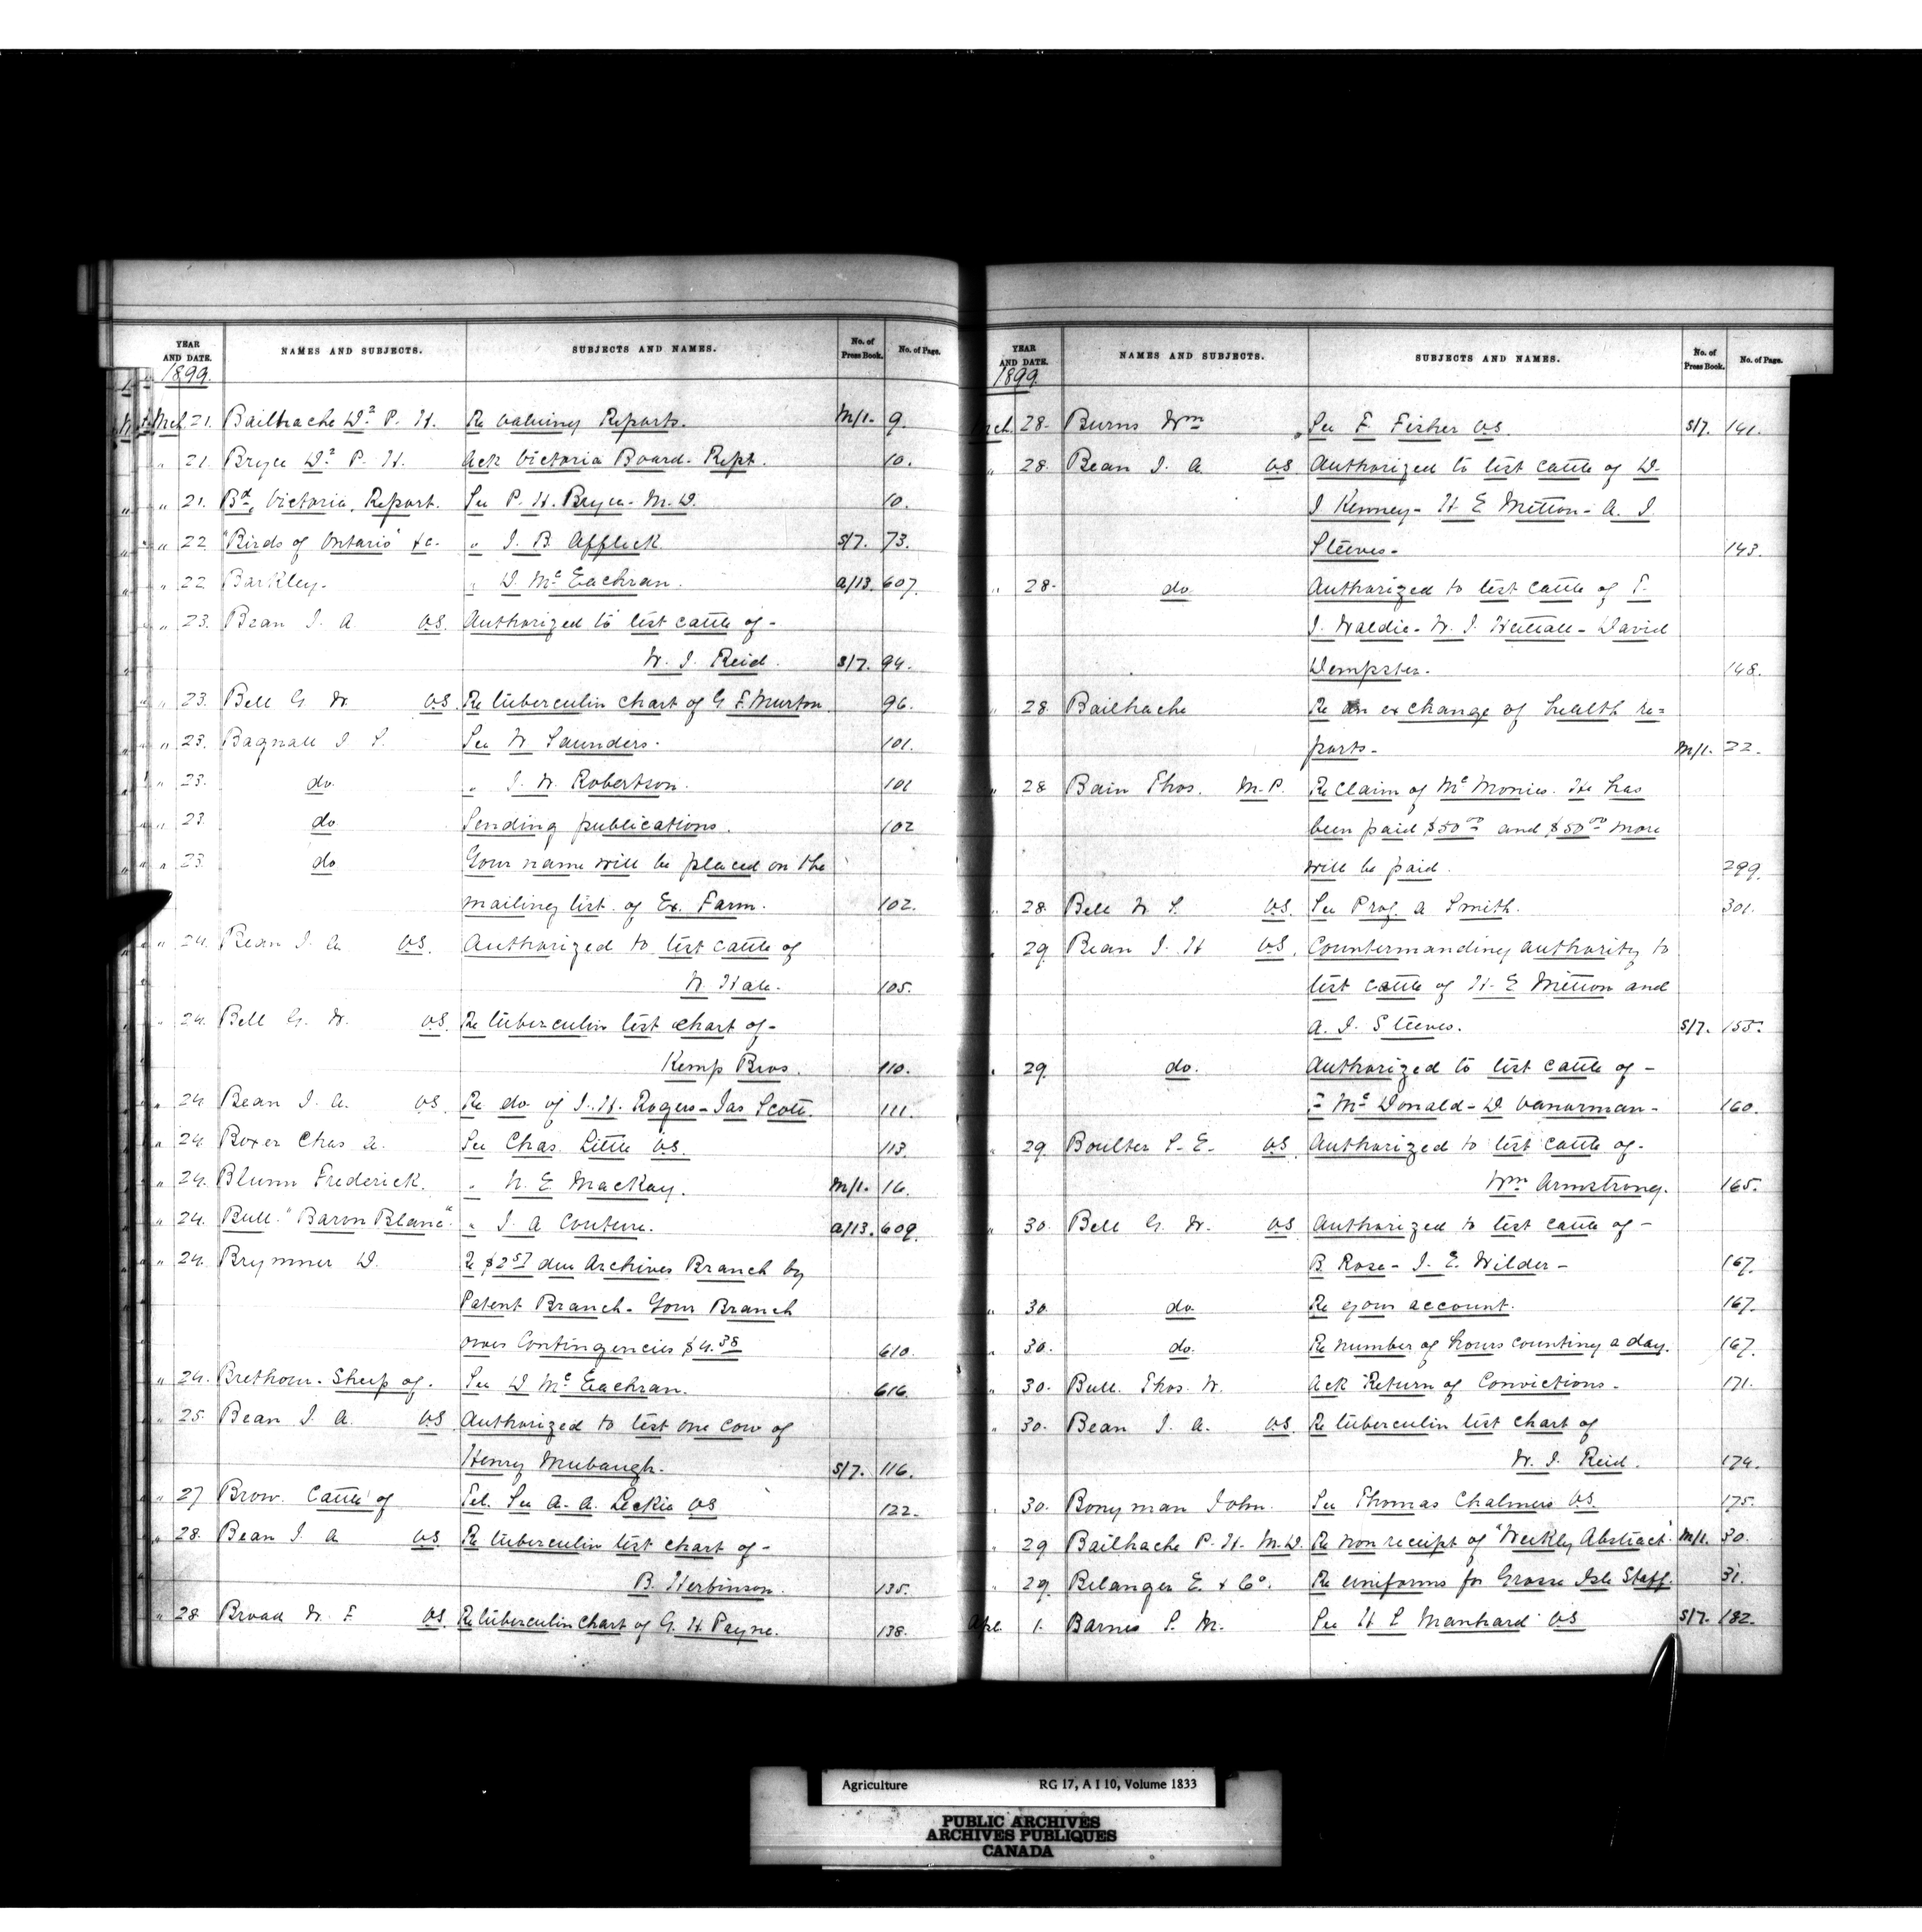 YEAR AND DATE. NAMES AND SUBJECTS. SUBJECTS AND NAMES. No. of Press Book. No. of Page.
1899.
Mch 21. Bailhache Dr P. H. Re valuing Reports. M/1. 9.
" 21. Bryce Dr P. H. Ack Victoria Board. Rept. 10.
" 21. Bd, Victoria, Report. See P. H. Bryce. M. D. 10.
" 22 "Birds of Ontario" &c. " J. B. Affleck. S/7. 73.
" 22 Barkley. " D. Mc Eachran. A/13. 607.
" 23. Bean J. A. V.S. Authorized to test cattle of -
W. J. Reid. S/7. 94.
" 23. Bell G. W. V.S. Re tuberculin chart of G. F. Murton. 96.
" 23. Bagnall J. S. See W Saunders. 101.
" 23. do. " J. W. Robertson. 101
" 23. do Sending publications. 102
" 23. do Your name will be placed on the
mailing list of Ex. Farm. 102.
" 24. Bean J. A. V.S. Authorized to test cattle of
W. Hale. 105.
" 24. Bell G. W. V.S. Re tuberculin test chart of -
Kemp Bros. 110.
" 24. Bean J. A. V.S. Re do of J. H. Rogers - Jas Scott. 111.
" 24. Boxer Chas A. See Chas. Little V.S. 113.
" 24. Blunn Frederick. " N. E. MacKay. M/1. 16.
" 24. Bull. "Baron Blanc" " J. A Couture. A/13. 609.
" 24. Brymner D. Re $2.57 due Archives Branch by
Patent Branch. Your Branch
owes Contingencies $4.38 610.
" 24. Brethour. Sheep of. See D Mc Eachran. 616.
" 25. Bean J. A. V.S. Authorized to test one cow of
Henry Mubaugh. S/7. 116.
" 27 Brow. Cattle of Tel. See A. A. Leckie V.S 122.
" 28. Bean J. A V.S Re tuberculin test chart of -
B. Herbinson. 135.
" 28 Broad W. F. V.S. Re tuberculin chart of G. H. Payne. 138.
YEAR AND DATE. NAMES AND SUBJECTS. SUBJECTS AND NAMES. No. of Press Book. No. of Page.
1899.
Mch. 28. Burns Wm See F. Fisher V.S. S/7. 141.
" 28. Bean J. A. V.S Authorized to test cattle of D.
J Kenney - H E Mitton - A. J.
Steeves - 143.
" 28. do Authorized to test cattle of T.
J. Waldie - W. J. - David
Dempster. 148.
" 28. Bailhache Re an exchange of health re=
ports. M/1. 22.
" 28 Bain Thos. M. P. Re Claim of Mc Monies. He has
been paid $50.00 and $50.00 more
will be paid. 299.
" 28. Bell W. S. V.S. See Prof. A Smith. 301.
" 29. Bean J. H V.S. Countermanding authority to
test cattle of H. E Mitton and
A. J. Steeves. S/7. 155.
" 29. do. Authorized to test cattle of -
- Mc Donald - D Vanorman - 160.
" 29 Boulter S. E. V.S. Authorized to test cattle of -
Wm Armstrong. 165.
" 30. Bell G. W. V.S Authorized to test cattle of -
B. Rose - J. E. Wilder - 167.
" 30. do. Re your account. 167.
" 30. do. Re number of hours counting a day. 167.
" 30. Bull. Thos. W. Ack Return of Convictions. 171.
" 30. Bean J. A. V.S. Re tuberculin test chart of
W. J. Reid. 174.
" 30. Bonyman John. See Thomas Chalmers V.S. 175.
" 29 Bailhache P. H. M. D. Re non receipt of "Weekly Abstract". M/1. 30.
" 29. Belanger E. & Co. Re uniforms for Grosse Isle Staff. 31.
Apl. 1. Barnes S. M. See H S Manhard V.S S/7. 182.
Agriculture RG 17, A I 10, Volume 1833
PUBLIC ARCHIVES
ARCHIVES PUBLIQUES
CANADA